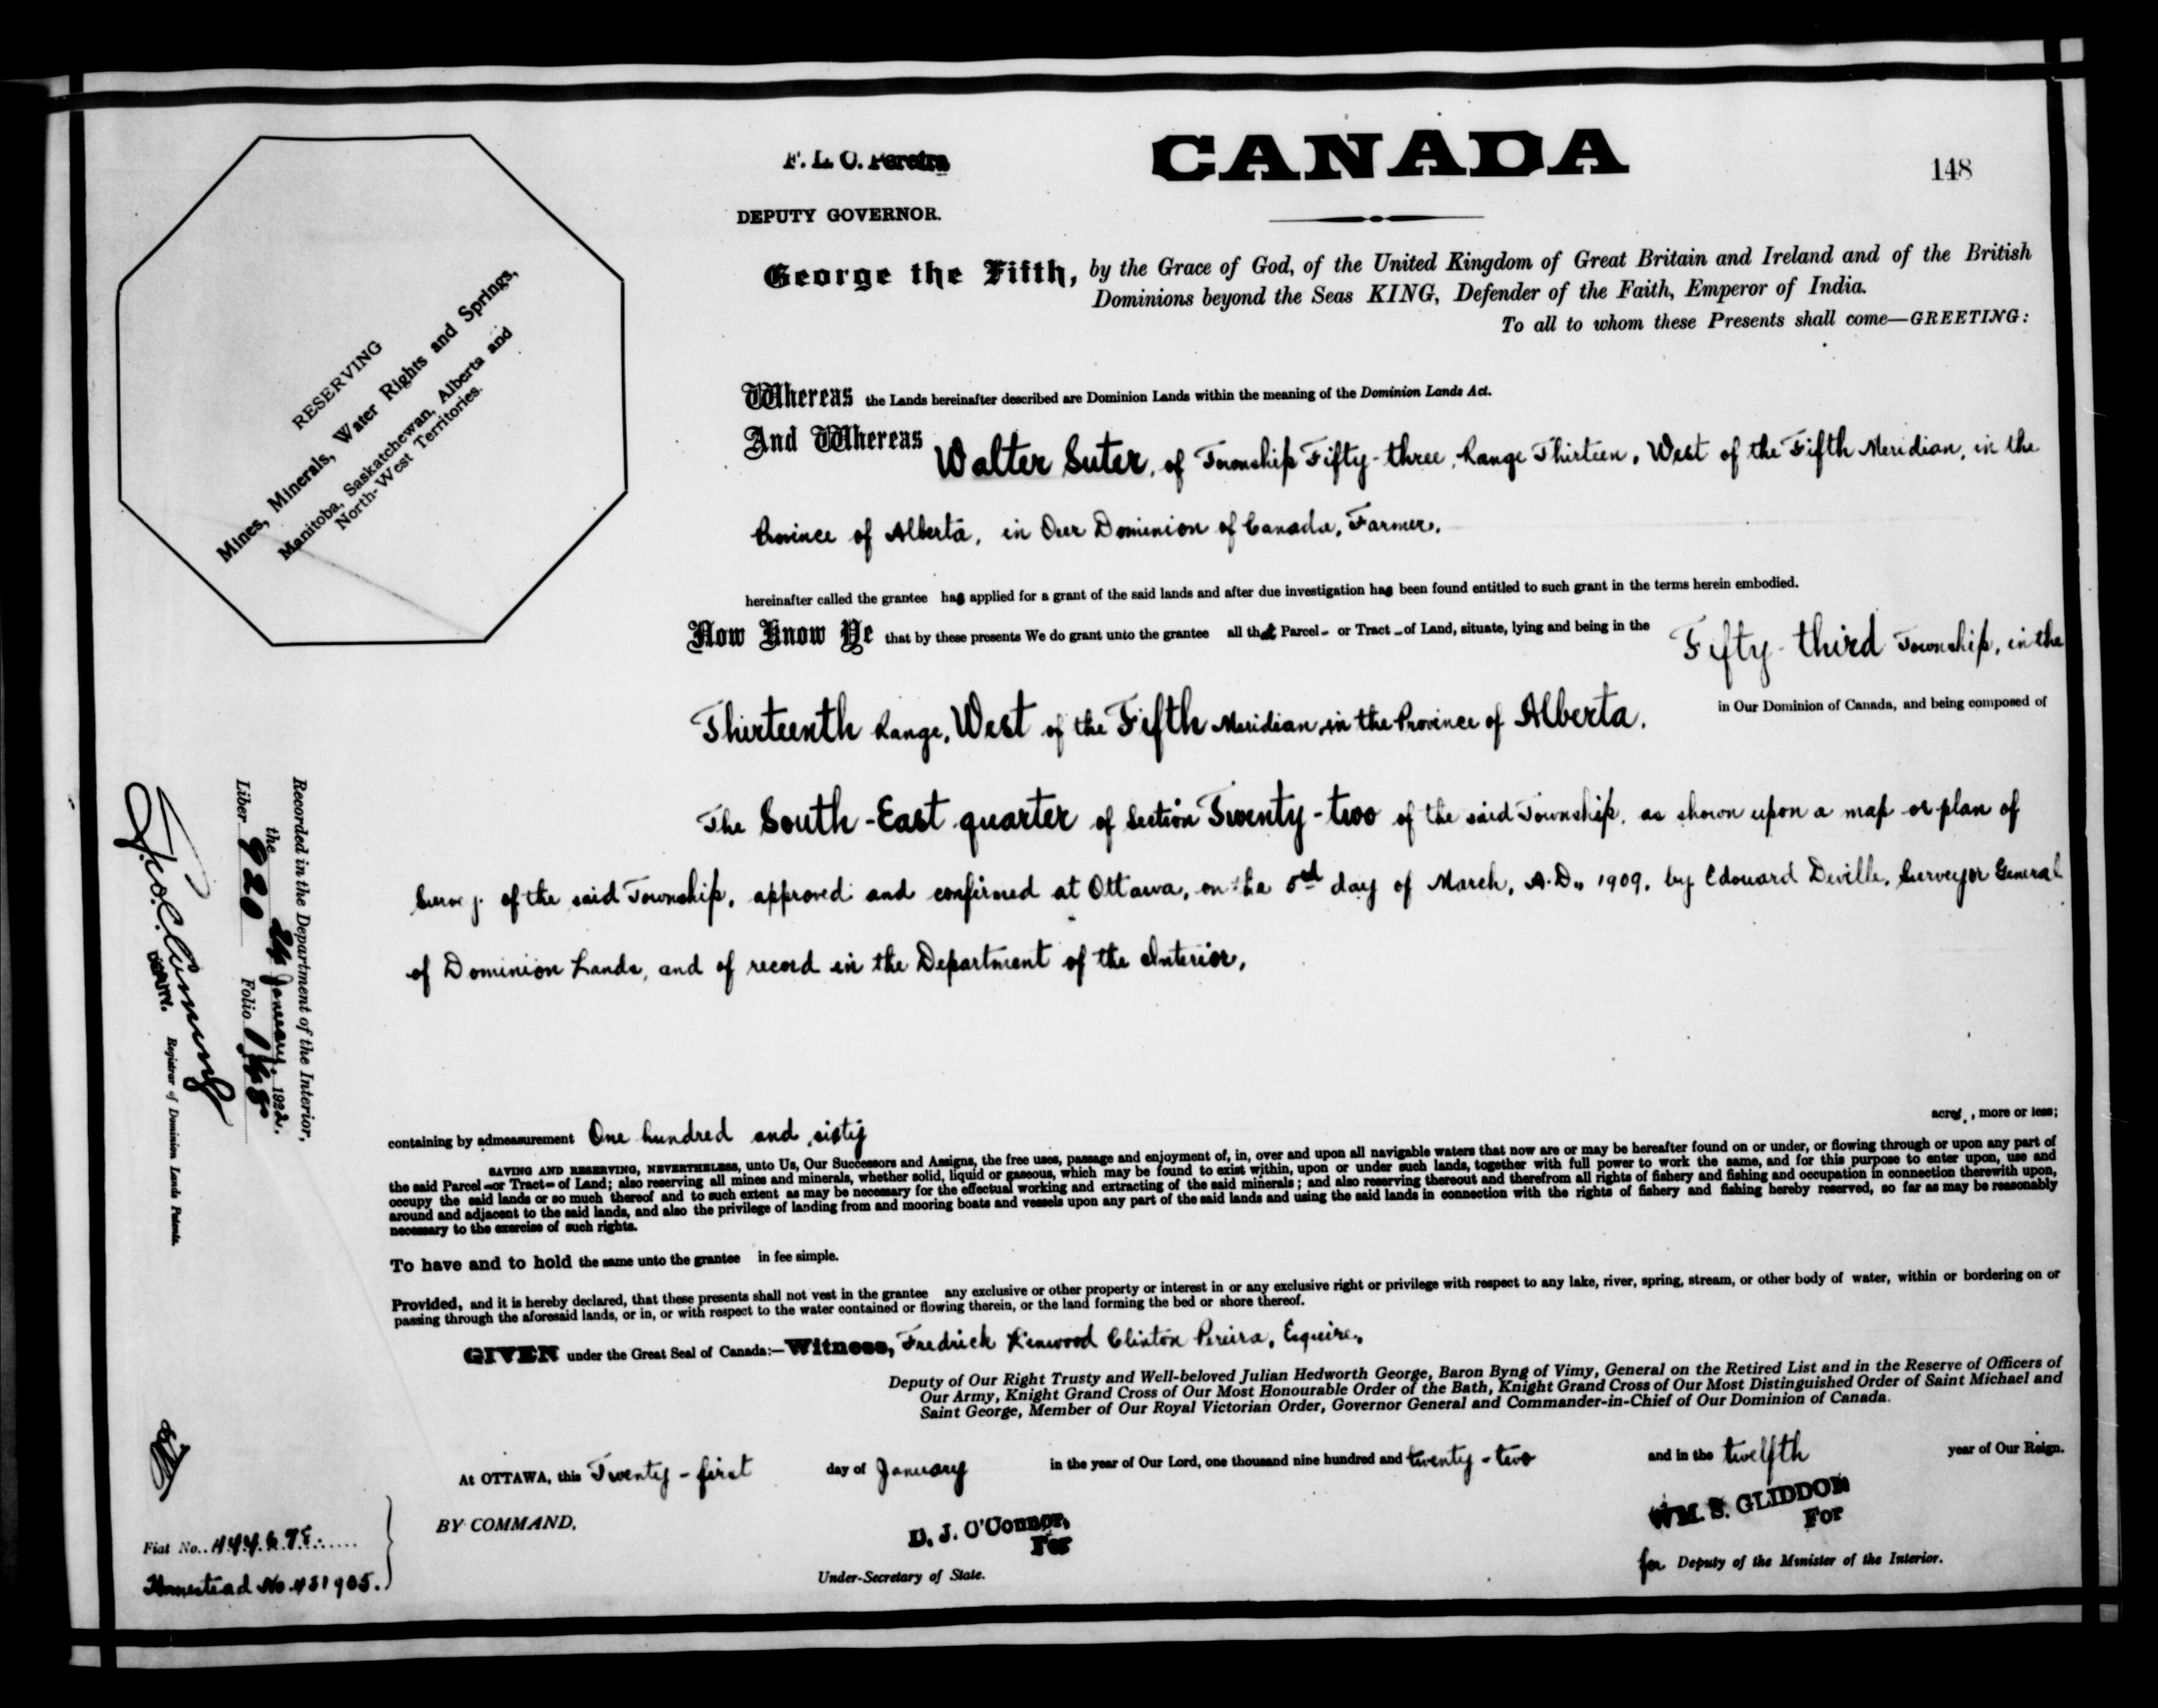 F. L. C. Pereira
CANADA
148
DEPUTY GOVERNOR.
George the Fifth, by the Grace of God, of the United Kingdom of Great Britain and Ireland and of the British
Dominions beyond the Seas KING, Defender of the Faith, Emperor of India.
To all to whom these Presents shall come—GREETING:
RESERVING
Mines, Minerals, Water Rights and Springs,
Manitoba, Saskatchewan, Alberta and
North-West Territories.
Whereas the Lands hereinafter described are Dominion Lands within the meaning of the Dominion Lands Act.
And Whereas Walter Suter, of Township Fifty-three, Range Thirteen, West of the Fifth Meridian, in the
Province of Alberta, in Our Dominion of Canada, Farmer,
hereinafter called the grantee has applied for a grant of the said lands and after due investigation has been found entitled to such grant in the terms herein embodied.
Now Know Ye that by these presents We do grant unto the grantee all that Parcel- or Tract - of Land, situate, lying and being in the Fifty-third Township, in the
Thirteenth Range, West of the Fifth Meridian, in the Province of Alberta, in Our Dominion of Canada, and being composed of
The South-East quarter of Section Twenty-two of the said Township, as shown upon a map or plan of
Survey of the said Township, approved and confirmed at Ottawa, on the day of March, A.D., 1909, by Edouard Deville, Surveyor General
of Dominion Lands, and of record in the Department of the Interior,
Recorded in the Department of the Interior,
the 24 January, 1922.
Liber 920 Folio 148
DEPUTY. Registrar of Dominion Lands Patents.
containing by admeasurement One hundred and sixty acres, more or less;
SAVING AND RESERVING, NEVERTHELESS, unto Us, Our Successors and Assigns, the free uses, passage and enjoyment of, in, over and upon all navigable waters that now are or may be hereafter found on or under, or flowing through or upon any part of
the said Parcel -or Tract- of Land; also reserving all mines and minerals, whether solid, liquid or gaseous, which may be found to exist within, upon or under such lands, together with full power to work the same, and for this purpose to enter upon, use and
occupy the said lands or so much thereof and to such extent as may be necessary for the effectual working and extracting of the said minerals; and also reserving thereout and therefrom all rights of fishery and fishing and occupation in connection therewith upon,
around and adjacent to the said lands, and also the privilege of landing from and mooring boats and vessels upon any part of the said lands and using the said lands in connection with the rights of fishery and fishing hereby reserved, so far as may be reasonably
necessary to the exercise of such rights.
To have and to hold the same unto the grantee in fee simple.
Provided, and it is hereby declared, that these presents shall not vest in the grantee any exclusive or other property or interest in or any exclusive right or privilege with respect to any lake, river, spring, stream, or other body of water, within or bordering on or
passing through the aforesaid lands, or in, or with respect to the water contained or flowing therein, or the land forming the bed or shore thereof.
GIVEN under the Great Seal of Canada:—Witness, Fredrick Linwood Clinton Pereira, Esquire,
Deputy of Our Right Trusty and Well-beloved Julian Hedworth George, Baron Byng of Vimy, General on the Retired List and in the Reserve of Officers of
Our Army, Knight Grand Cross of Our Most Honourable Order of the Bath, Knight Grand Cross of Our Most Distinguished Order of Saint Michael and
Saint George, Member of Our Royal Victorian Order, Governor General and Commander-in-Chief of Our Dominion of Canada.
At OTTAWA, this Twenty-first day of January in the year of Our Lord, one thousand nine hundred and twenty-two and in the twelfth year of Our Reign.
BY COMMAND,
D. J. O'Connor,
For
Under-Secretary of State.
WM. S. GLIDDON
For
for Deputy of the Minister of the Interior.
Fiat No.
Homestead No. 431905.